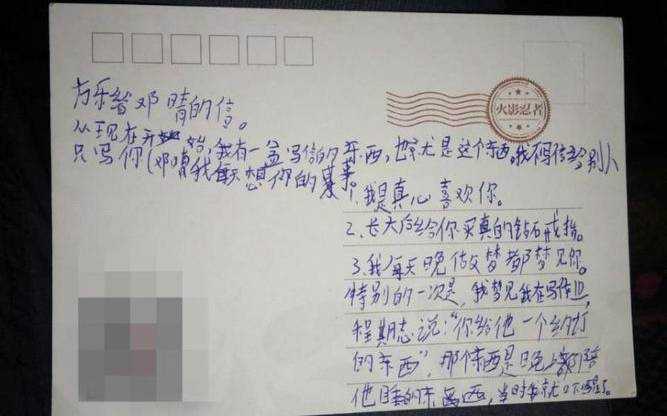 火影忍者
方乐智邓晴的信。
从现在开始,我有一盒写信的东西,也就是这个东西,我不写信给别人
只写你(邓晴我每天想你的某事。
1.我是真心喜欢你。
2.长大后给你买真的钻石戒指。
3.我每天晚做梦都梦见你。
特别的一次是,我梦见我在写作业,
程期志说:“你给他一个
的东西”,那个东西是晚上
他睡的东西,当时我就